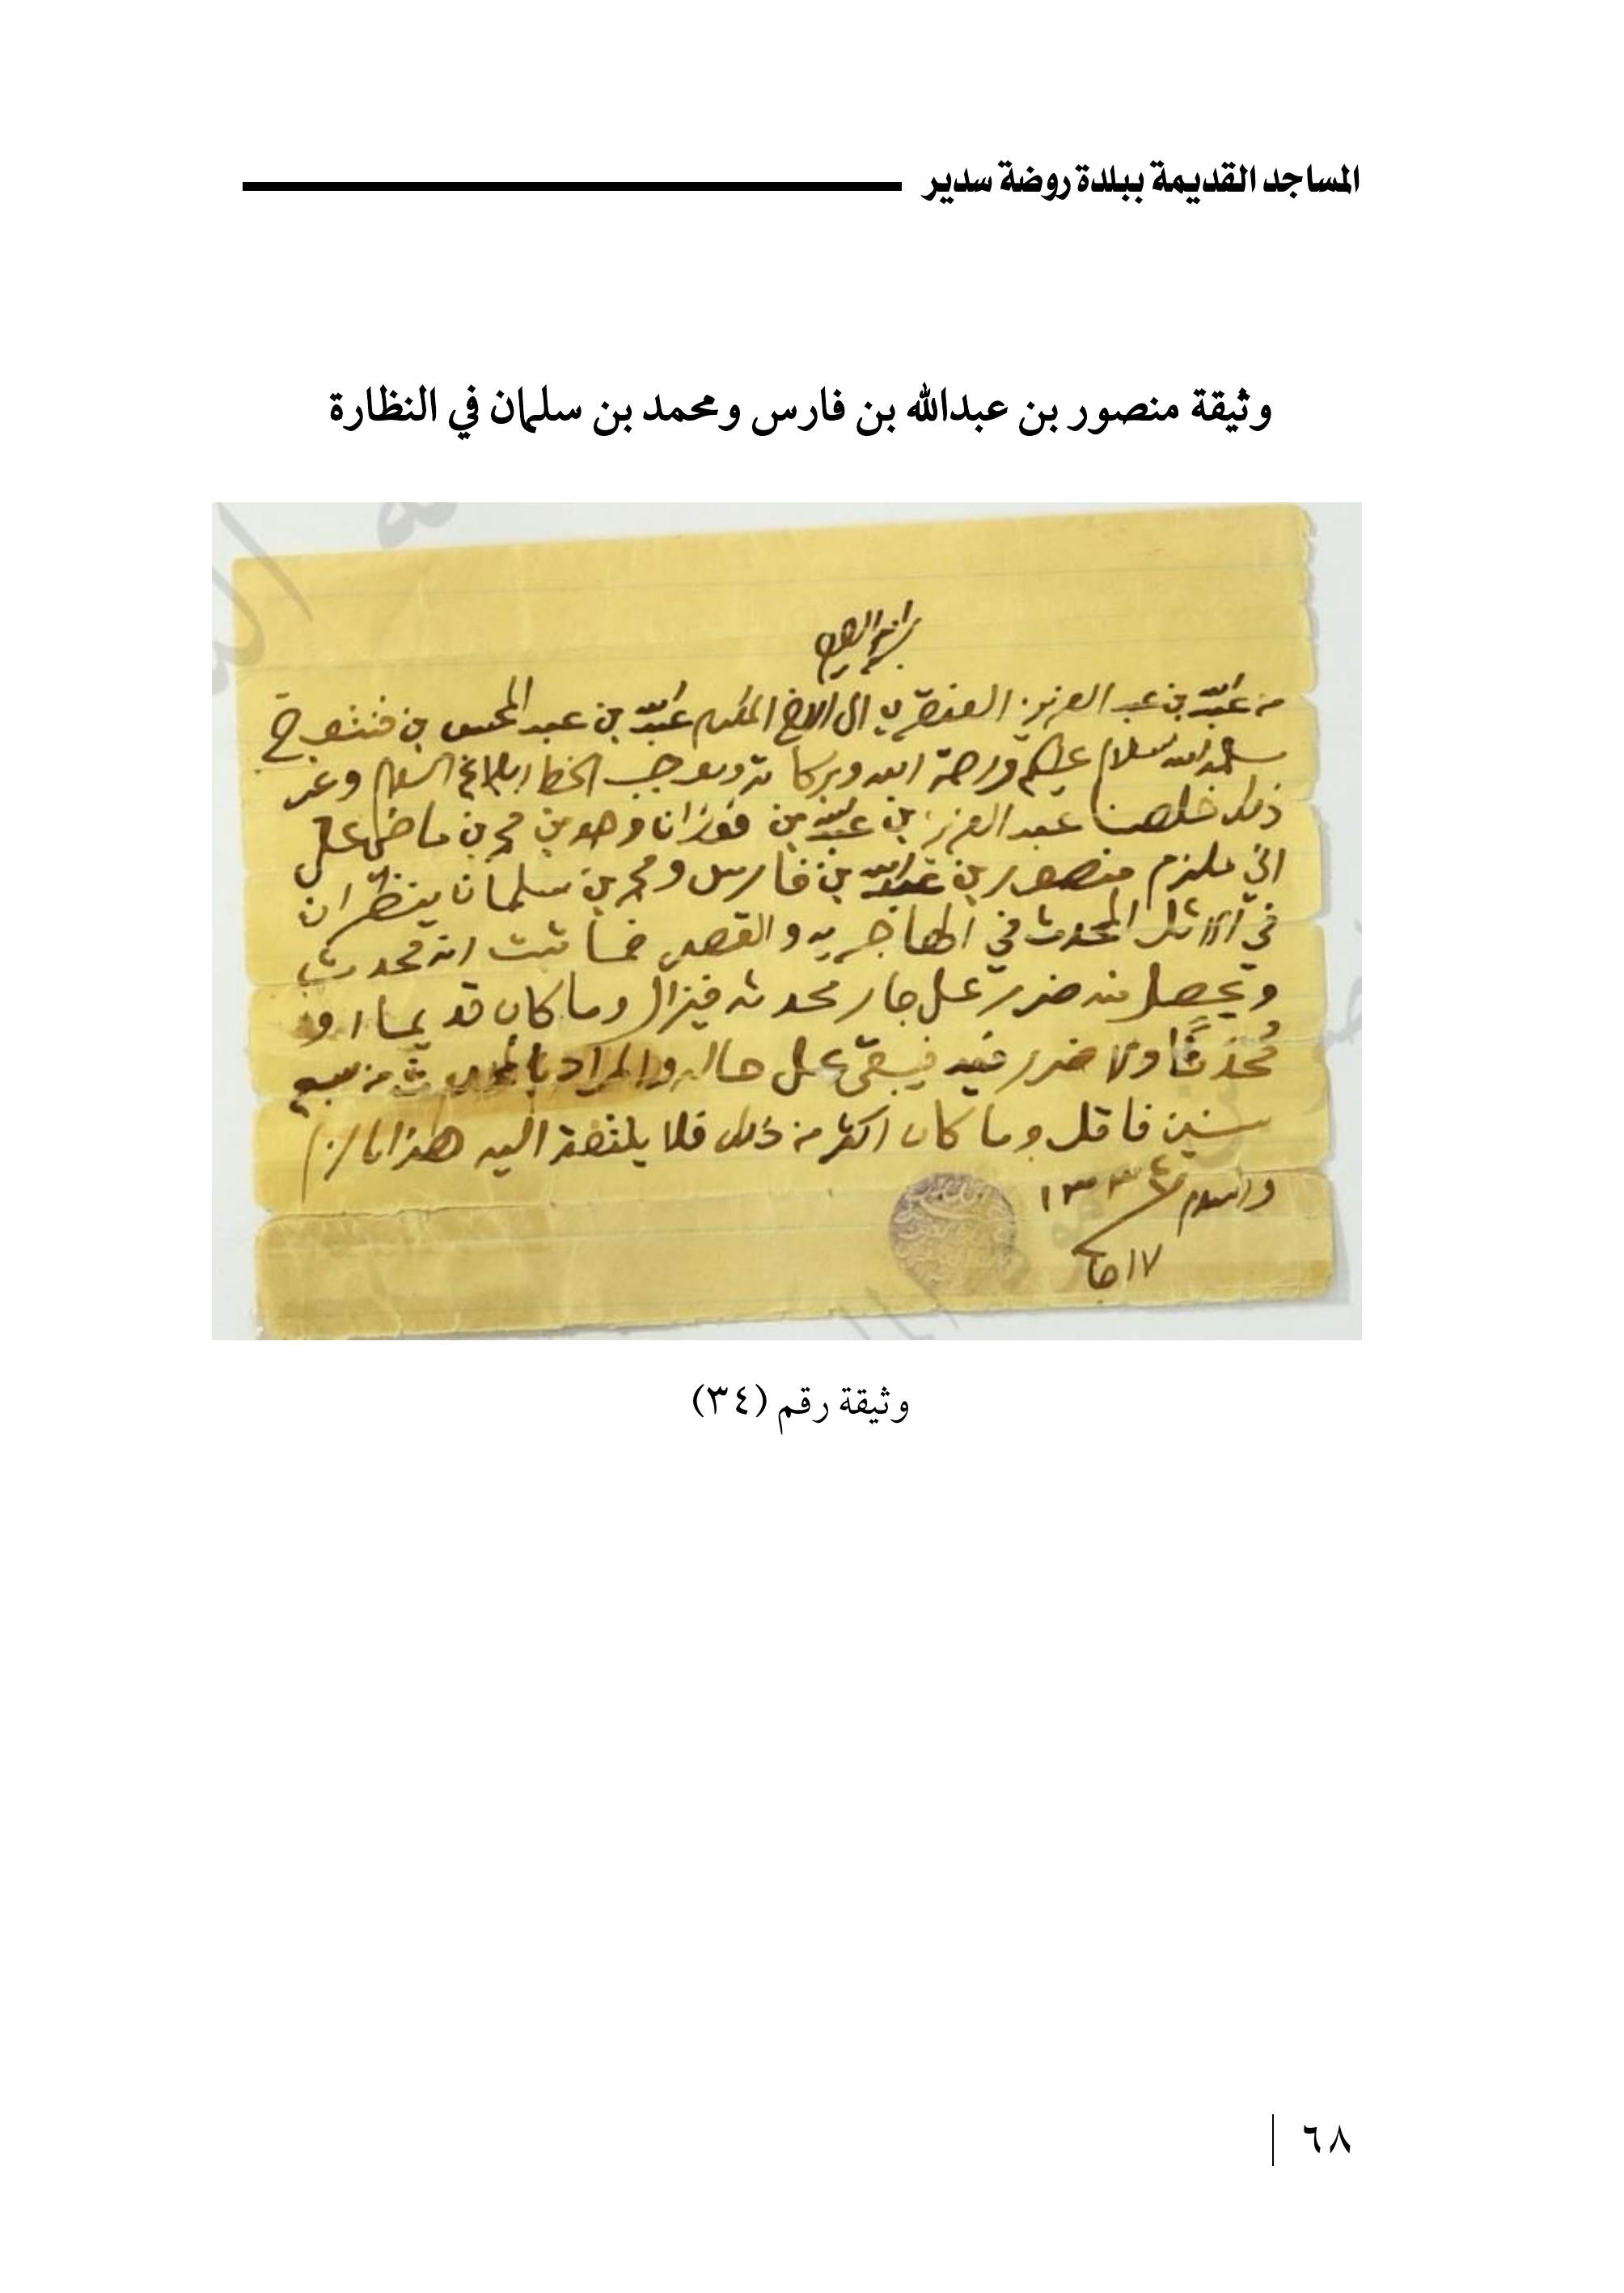 المساجد القديمة ببلدة روضة سدير
وثيقة منصور بن عبدالله بن فارس ومحمد بن سلمان في النظارة
من عبدالله بن عبد العزيز العنقري الى الاخ المكرم عبدالله بن عبد المحسن بن فنتوخ
سلمه الله سلام عليكم ورحمة الله وبركاته وموجب الخط ابلاغ السلام وغير
ذلك خلصنا عبد العزيز بن عبدالله بن فوزان وهو بن محمد بن ماضي على
اني ملزم منصور بن عبدالله بن فارس ومحمد بن سلمان ينظران
في الاثل المحدث في الهاجريه والقصر فما ثبت انه محدث
ويحصل منه ضرر على جار محدثه فيزال وما كان قديما او
مُحدثًا ولا ضرر فيه فيبقى على حاله والمراد بالمحدث من سبع
سنين فاقل وما كان اكثر من ذلك فلا يلتفت اليه هذا مالزم
والسلام ١٣٣٤
١٧
وثيقة رقم (٣٤)
٦٨